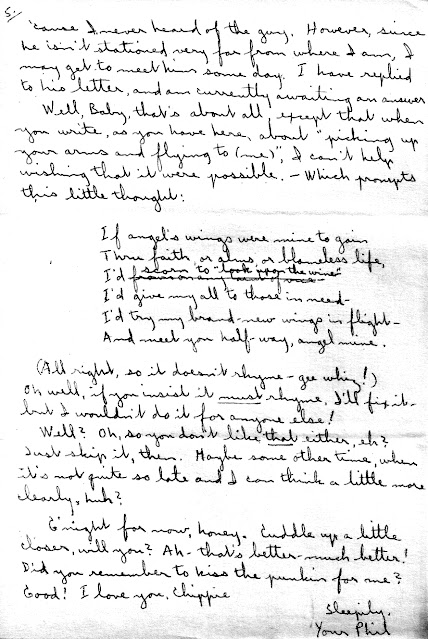 5.
'cause I never heard of the guy. However, since
he isn't stationed very far from where I am, I
may get to meet him some day. I have replied
to his letter, and am currently awaiting an answer
Well, Baby, that's about all, except that when
you write, as you have here, about "picking up
your arms and flying to (me)", I can't help
wishing that it were possible. - Which prompts
this little thought:
If angel's wings were mine to gain
Thru faith, or alms, or blameless life,
I'd scorn to "look upon the wine"
I'd give my all to those in need -
I'd try my brand-new wings in flight -
And meet you half-way, angel mine.
(All right, so it doesn't rhyme - gee whiz!)
Oh well, if you insist it must rhyme, I'll fix it -
but I wouldn't do it for anyone else!
Well? Oh, so you don't like that either, eh?
Just skip it, then. Maybe some other time, when
it's not quite so late and I can think a little more
clearly, huh?
G'night for now, honey. Cuddle up a little
closer, will you? Ah - that's better - much better!
Did you remember to kiss the punkin for me?
Good! I love you, Chippie
Sleepily,
Yours Phil